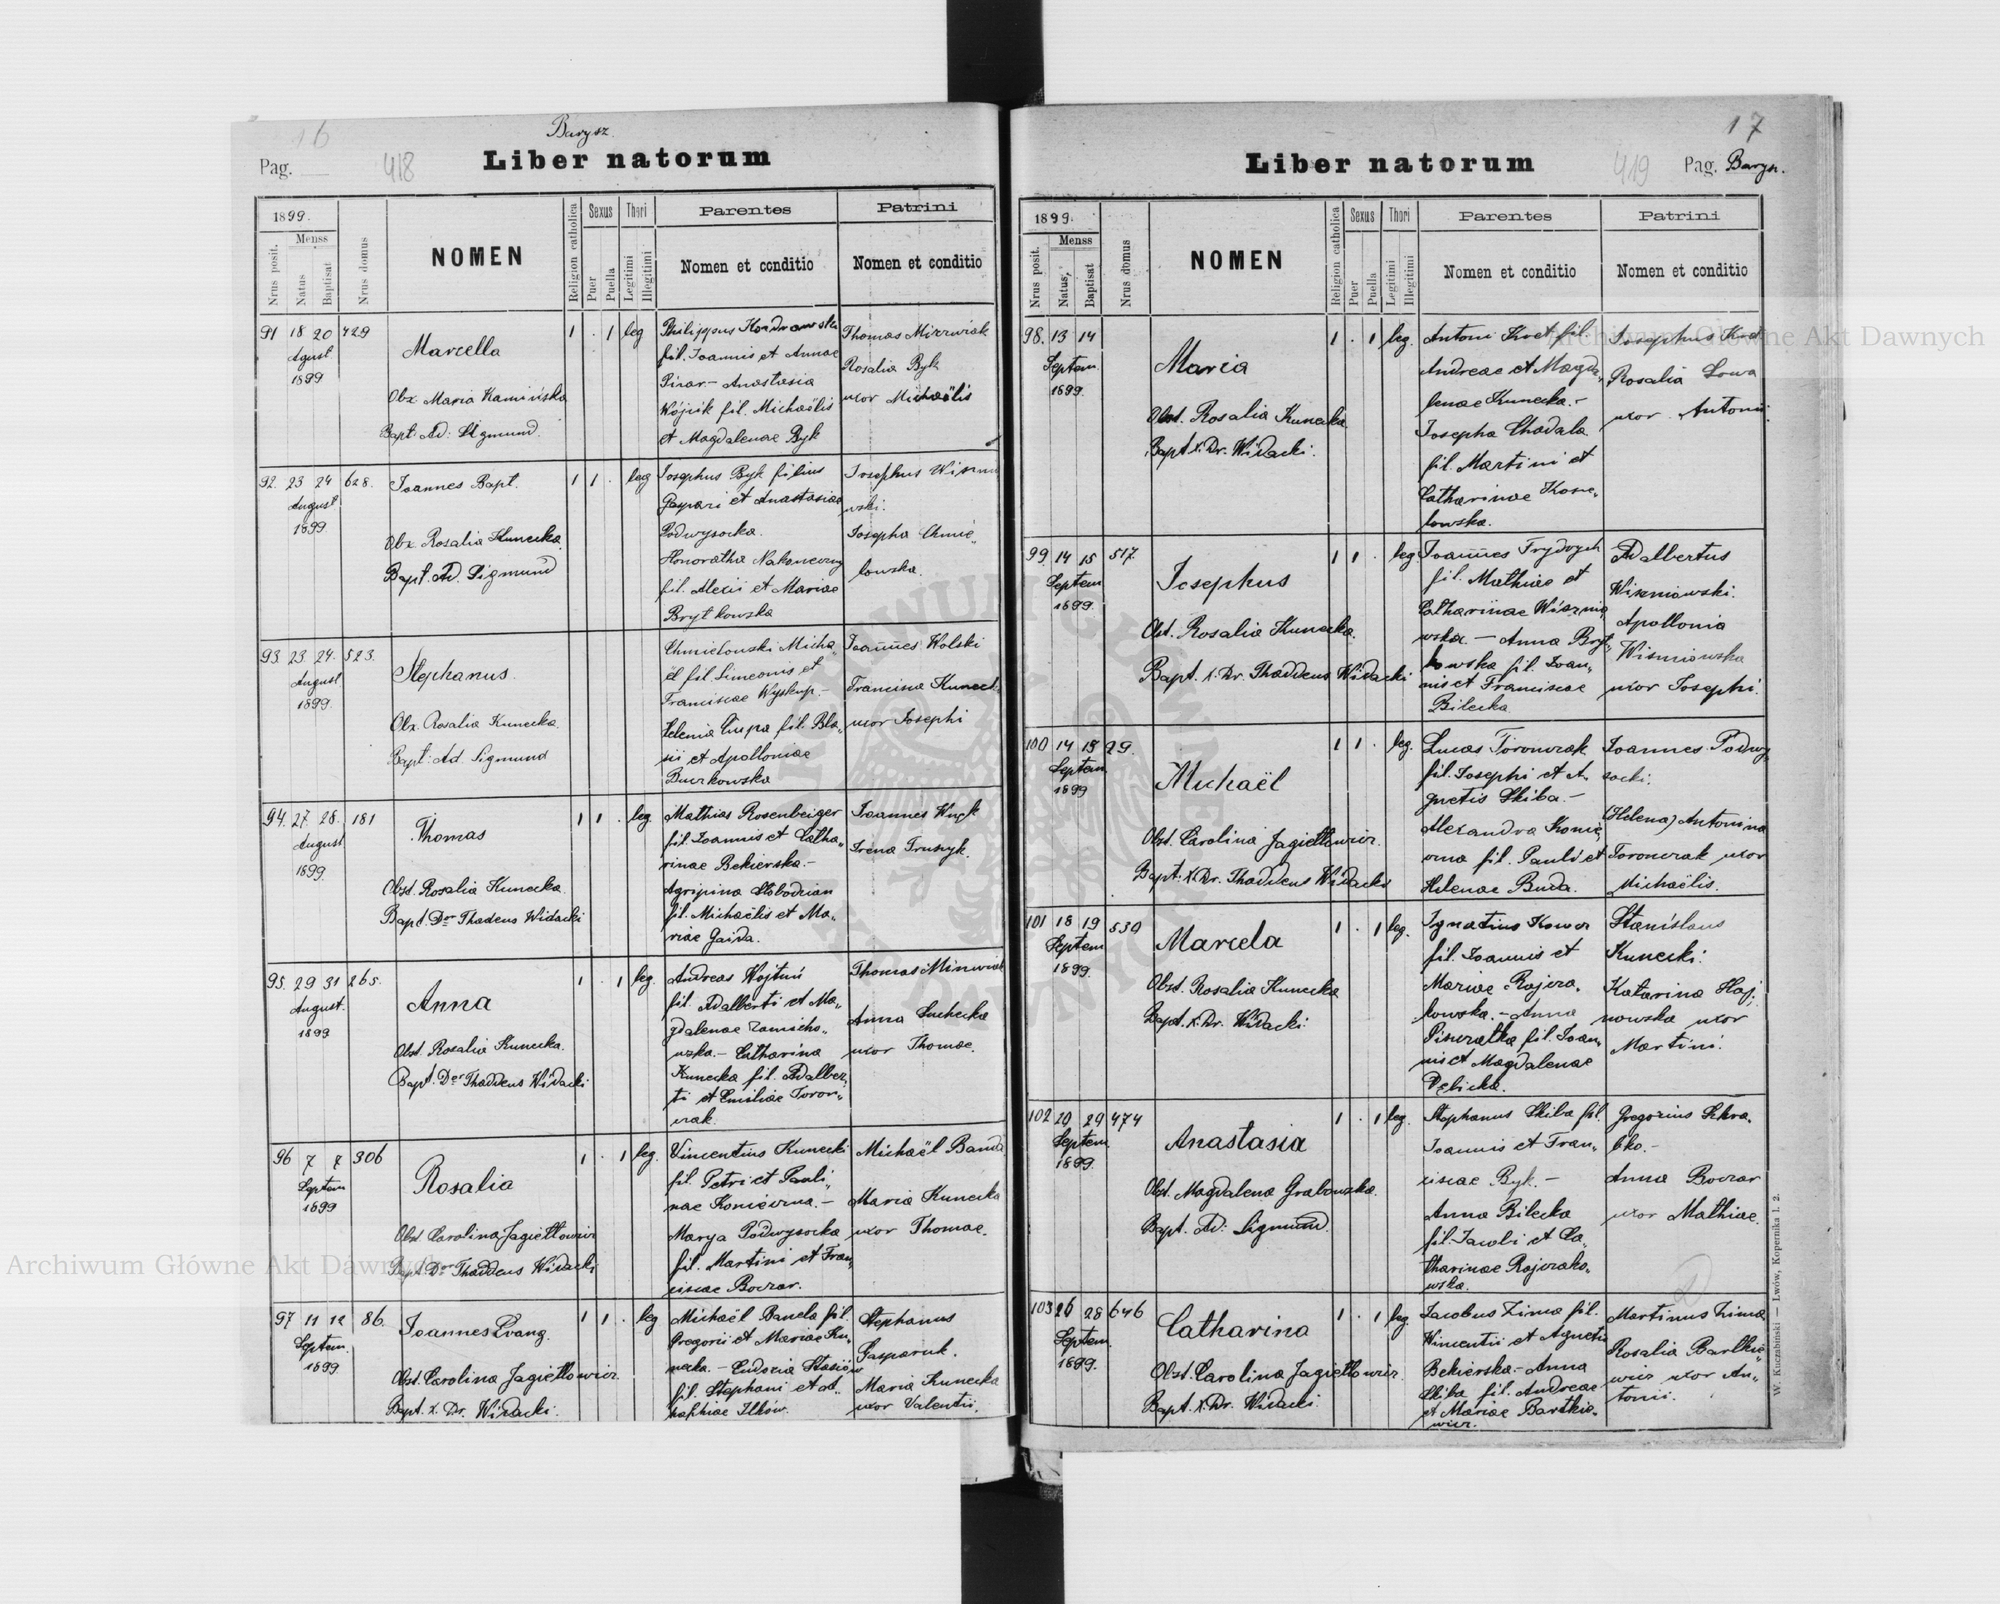 Barysz.
16
Pag.
418
Liber natorum
1899.
Menss
Nrus posit.
Natus
Baptisat
Nrus domus
NOMEN
Religion catholica
Sexus
Puer
Puella
Thori
Legitimi
Illegitimi
Parentes
Nomen et conditio
Patrini
Nomen et conditio
91 18 20 429
Agust
1899
Marcella
Obx. Maria Kamińska
Bapt: Ad: Sigmund.
1 . 1 leg
Philippus
fil. Joannis et Annae
Pisar - Anastasia
Wójcik fil. Michaëlis
et Magdalenae Byk
Thomas
Rosalia Byk
uxor Michaëlis
92. 23 24 628.
August
1899
Joannes Bapt.
Obx. Rosalia Kunecka
Bapt. Ad. Sigmund
1 1 . leg
Josephus Byk filius
Gaspari et Anastasiae
Podwysocka.
Honoratha
fil. Alexii et Mariae
Brytkowska
Josephus
wski.
Josepha Chmie„
lowska.
93. 23 24. 523.
August
1899.
Stephanus.
Obx. Rosalia Kunecka
Bapt: Ad. Sigmund
Chmielowski Micha„
ël fil. Simeonis et
Franciscae Wyskup. -
Helenia fil. Bla„
sii et Apolloniae
Burkowska
Joannes Wolski
Francisca Kunecka
uxor Josephi
94. 27 28. 181
August
1899.
Thomas
Obst. Rosalia Kunecka
Bapt. Dor Thadeus Widacki
1 1 . leg.
Mathias Rosenbeiger
fil. Joannis et Catha„
rinae Bekierska. -
Agripina Słobodzian
fil. Michaëlis et Ma„
riae Gaida.
Joannes
Irena
95. 29 31 265.
August.
1899
Anna
Obst. Rosalia Kunecka.
Bapt. Dor Thaddeus Widacki
1 . 1 leg.
Andreas
fil. Adalberti et Ma„
gdalenae
- Catharina
Kunecka fil. Adalber„
ti et Emiliae Toron„
czak.
Thomas
Anna Suchecka
uxor Thomae.
96 7 7 306
Septem
1899
Rosalia
Obst Carolina Jagiełłowicz
Bapt. Dor Thaddeus Widacki
1 . 1 leg.
Vincentius Kunecki
fil. Petri et Pauli„
nae -
Marya Podwysocka
fil. Martini et Fran„
ciscae Boczar.
Michaël Banda
Maria Kunecka
uxor Thomae.
97 11 12 86.
Septem.
1899
Joannes Evang.
Obst. Carolina Jagiełłowicz.
Bapt. X. Dr. Widacki.
1 1 . leg
Michaël fil.
Gregorii et Mariae Ku„
necka. - Eudoxia
fil. Stephani et
Ilków.
Stephanus
Gasparuk.
Maria Kunecka
uxor Valentii.
17
Liber natorum
419
Pag.
Barysz.
1899.
Menss
Nrus posit.
Natus
Baptisat
Nrus domus
NOMEN
Religion catholica
Sexus
Puer
Puella
Thori
Legitimi
Illegitimi
Parentes
Nomen et conditio
Patrini
Nomen et conditio
98. 13 14
Septem.
1899.
Maria
Obst. Rosalia Kunecka
Bapt. X. Dr. Widacki.
1 . 1 leg.
Antoni fil.
Andreae et Magda„
lenae Kunecka. -
Josepha Chadala
fil. Martini et
Catharinae
lowska.
Josephus
Rosalia Sowa
uxor Antonii
99. 14 15 517.
Septem
1899.
Josephus
Obst. Rosalia Kunecka.
Bapt. X. Dr. Thaddeus Widacki
1 1 . leg.
Joannes
fil. Mathiae et
Catharinae Wiśnio„
wska. - Anna Bryt„
kowska fil. Joan„
nis et Franciscae
Bilecka
Adalbertus
Wiśniowski.
Apollonia
Wiśniowska
uxor Josephi.
100 14 15 29.
Septem.
1899
Michaël
Obst. Carolina Jagiełłowicz.
Bapt: X. Dr. Thaddeus Widacki
1 1 . leg.
Lucas Toronczak
fil. Josephi et A„
gnetis Skiba. -
Alexandra
fil. Pauli et
Helenae Buda.
Joannes Podwy„
socki.
(Helena) Antonina
Toronczak uxor
Michaëlis.
101 18 19 530
Septem
1899.
Marcela
Obst. Rosalia Kunecka
Bapt. X. Dr. Widacki.
1 . 1 leg.
Ignatius
fil. Joannis et
Mariae
- Anna
fil. Joan„
nis et Magdalenae
Stanislaus
Kunecki.
Katarina Haj„
nowska uxor
Martini.
102 20 29 474
Septem.
1899.
Anastasia
Obst. Magdalena Grabowska.
Bapt. Ad: Sigmund.
1 . 1 leg.
Stephanus Skiba fil.
Joannis et Fran„
ciscae Byk. -
Anna Bilecka
fil. Jacobi et Ca„
tharinae
wska.
Gregorius
Anna Boczar
uxor Mathiae.
103 26 28 646
Septem.
1899.
Catharina
Obst. Carolina Jagiełłowicz.
Bapt. X. Dr. Widacki.
1 . 1 leg.
Jacobus Zima fil.
Wincentii et Agnetis
Bekierska. - Anna
Skiba fil. Andreae
et Mariae Bartkie„
wicz.
Martinus Zima
Rosalia Bartkie„
wicz uxor An„
tonii.
W. Kuczabiński — Lwów, Kopernika l. 2.
Archiwum Główne Akt Dawnych
Archiwum Główne Akt Dawnych